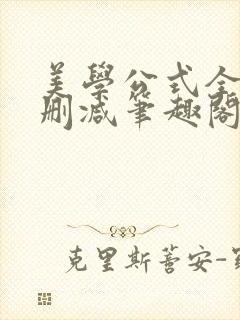 美學公式全
删减筆趣閣
克里斯蒂安-羅